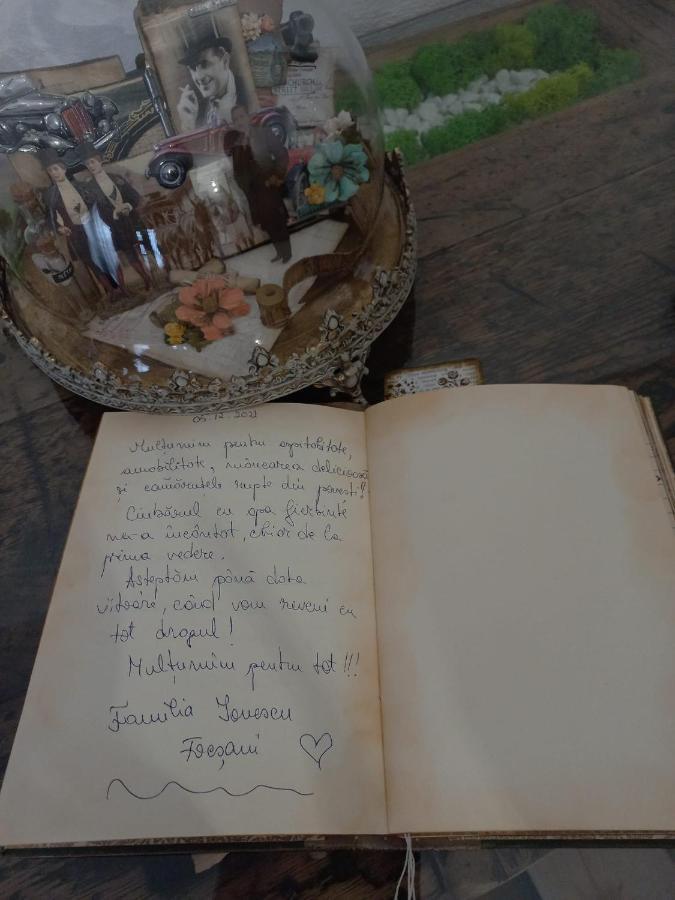 CHURCHILL
STREET
05.12.2021
Mulțumim pentru ospitalitate,
amabilitate, mâncarea delicioasă
și camăruțele rupte din povești!
Ciubărul cu apa fierbinte
ne-a încântat, chiar de la
prima vedere.
Așteptăm până data
viitoare, când vom reveni cu
tot dragul!
Mulțumim pentru tot!!!
Familia Ionescu
Focșani